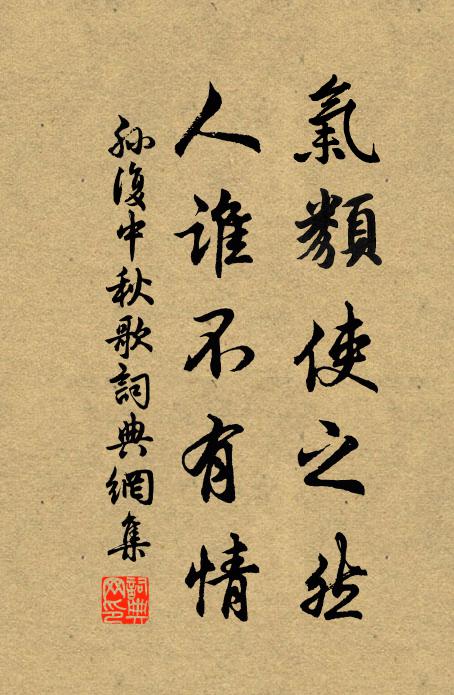 氣類使之然
人誰不有情
孫復中秋歌詞典網集
詞典網印